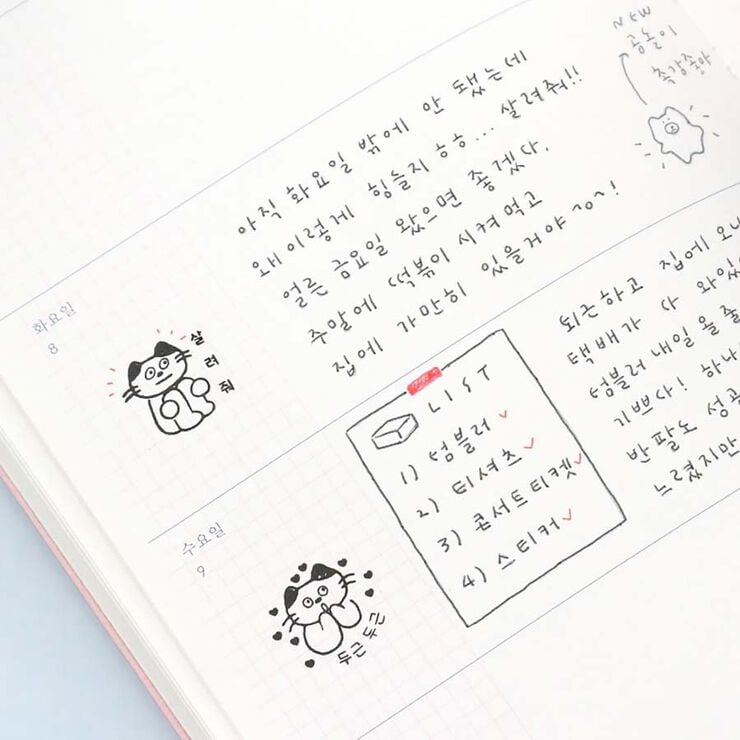 NEW
공놀이
촉감좋아
아직 화요일 밖에 안 됐는데
왜이렇게 힘들지 ㅎㅎ... 살려줘!!
얼른 금요일 왔으면 좋겠다.
주말에 떡볶이 시켜먹고
집에 가만히 있을거야~o~!
화요일
8
살려줘
퇴근하고 집에 오니
택배가 다 와있
텀블러 내일 올줄
기쁘다! 하나
반팔도 성공
느렸지만
LIST
1) 텀블러 ✓
2) 티셔츠 ✓
3) 콘서트티켓 ✓
4) 스티커 ✓
수요일
9
두근두근